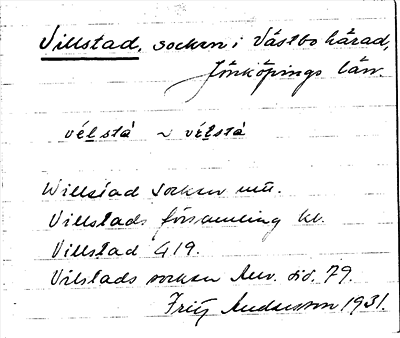 Villstad, socken i Västbo härad,
Jönköpings län.
vélstà ~ vélstà
Willstad socken
Villstads församling kb.
Villstad G 19.
Villstads socken sid. 79.
Fritz Andersson 1931.